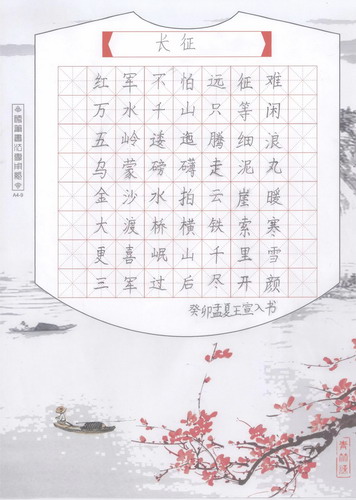 长征
红军不怕远征难
万水千山只等闲
五岭逶迤腾细浪
乌蒙磅礴走泥丸
金沙水拍云崖暖
大渡桥横铁索寒
更喜岷山千里雪
三军过后尽开颜
癸卯孟夏王宣入书